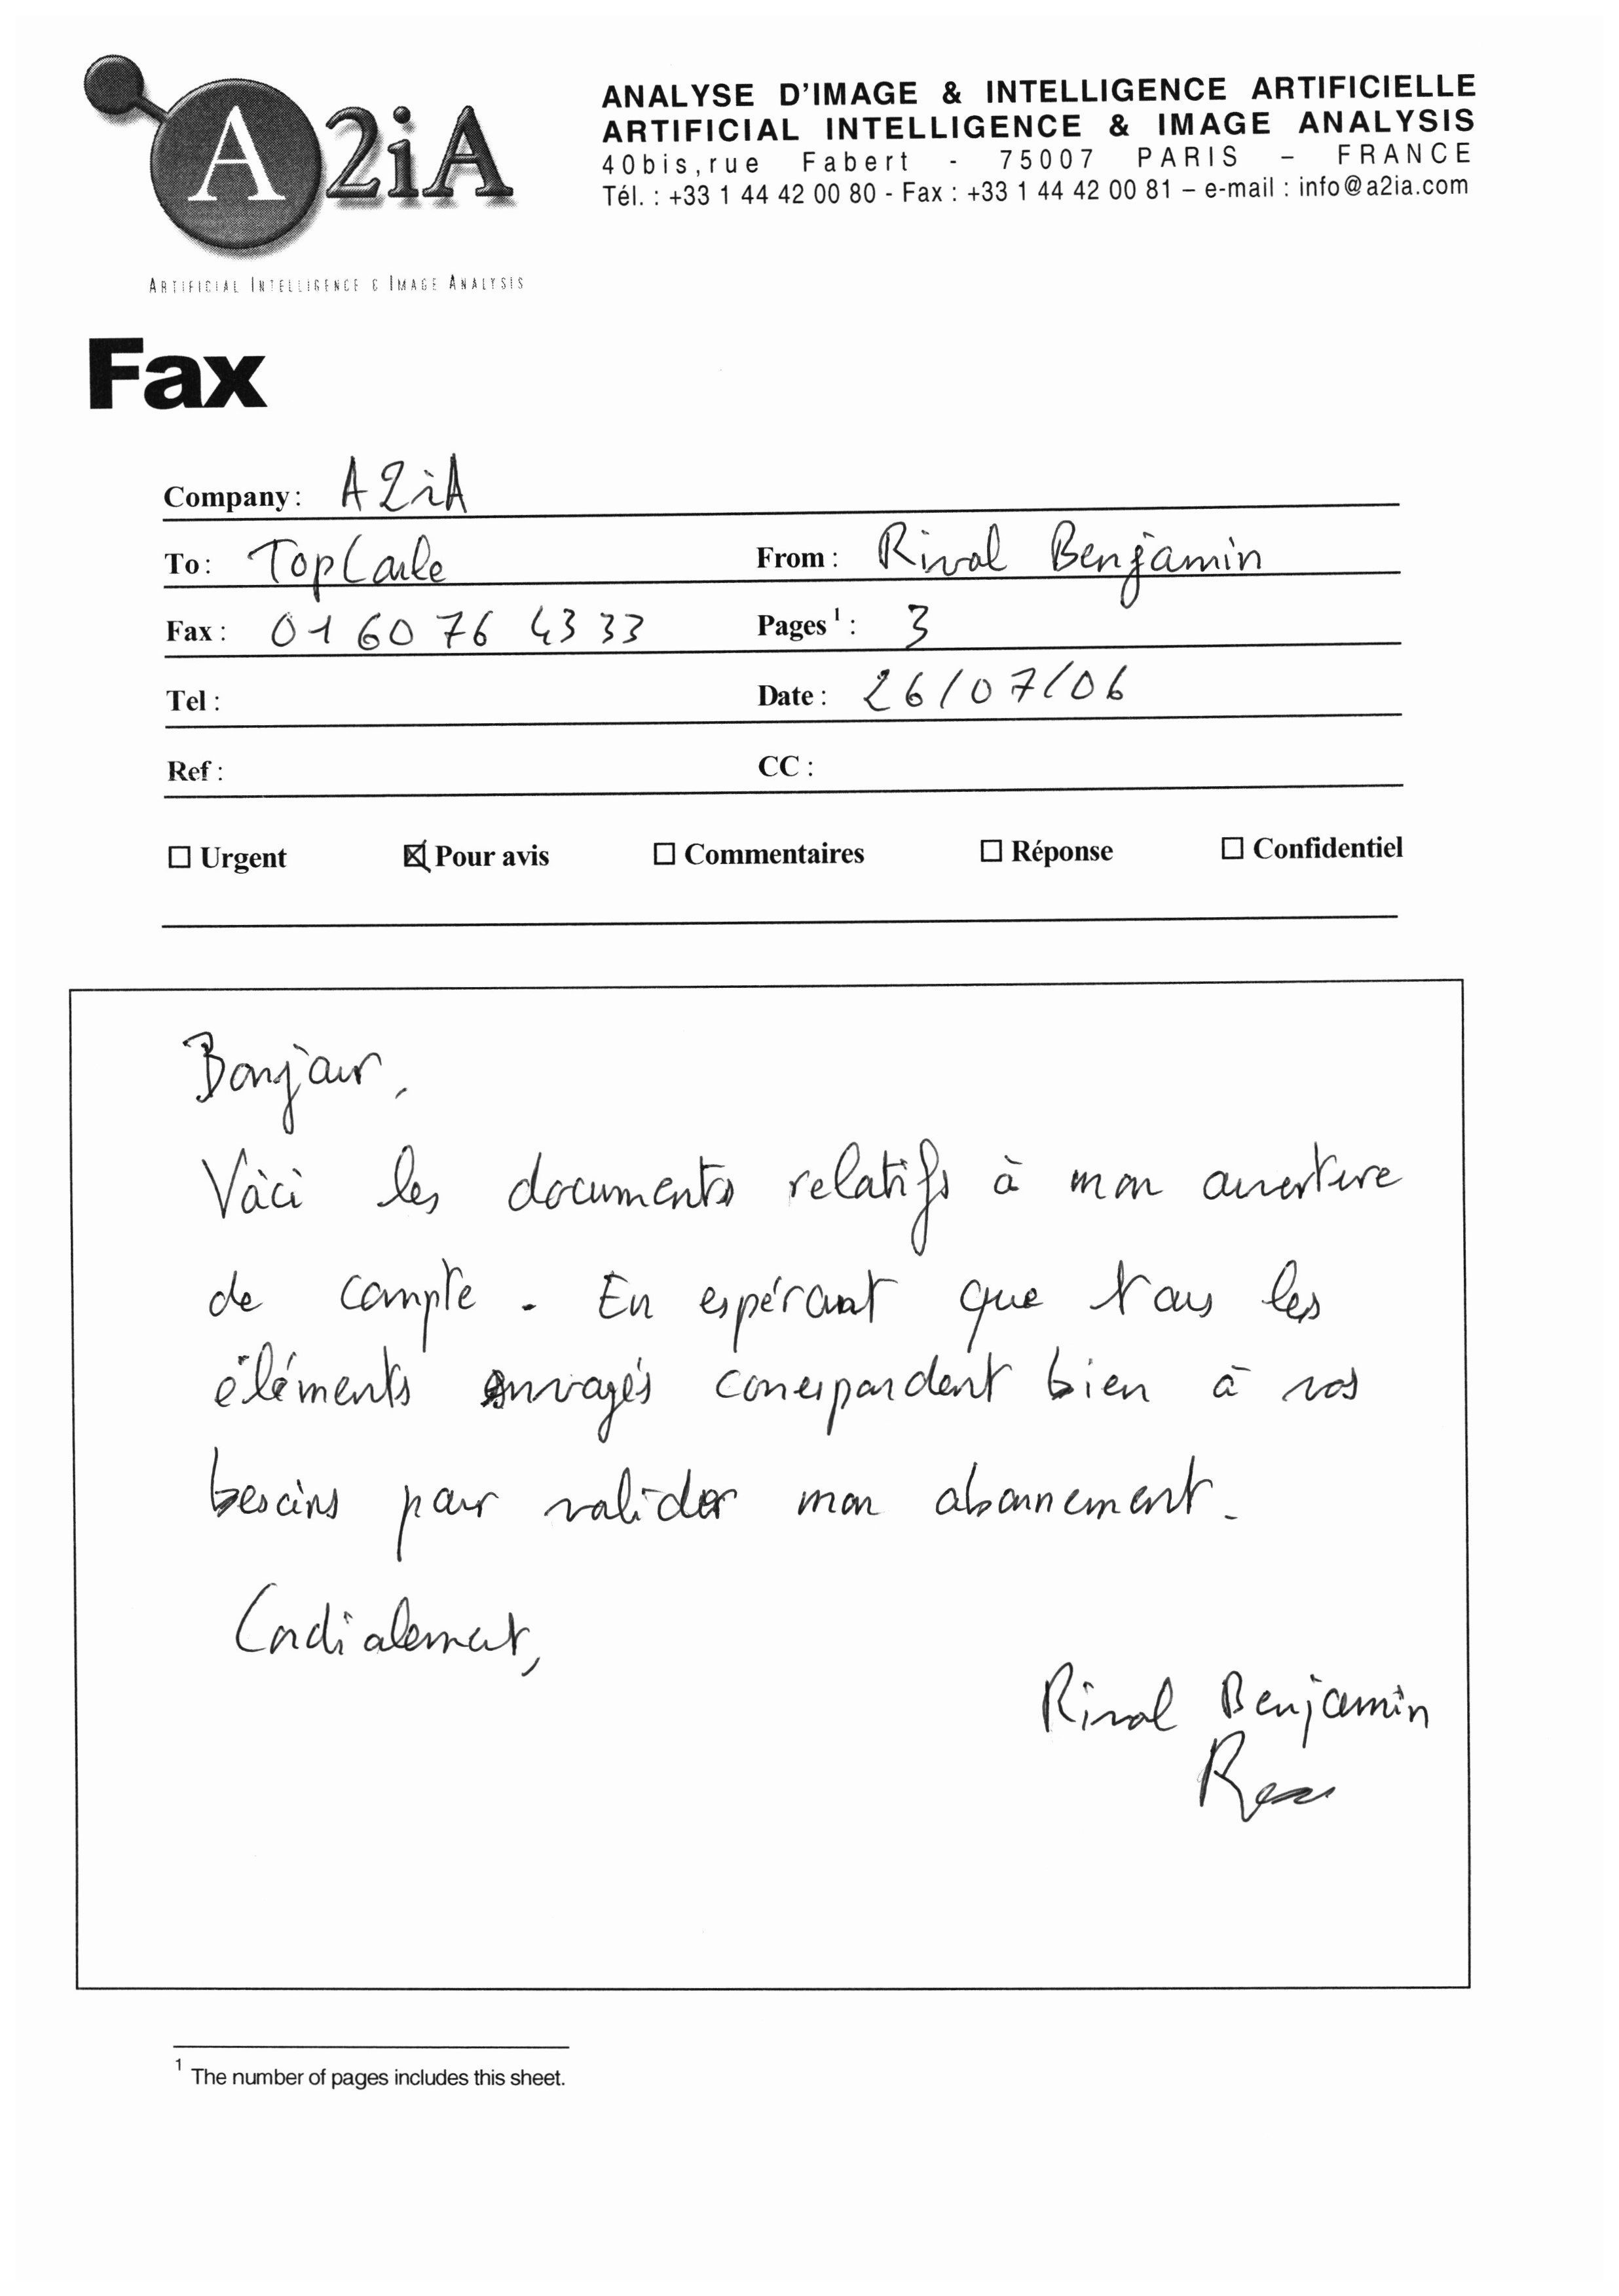 A2iA
ARTIFICIAL INTELLIGENCE & IMAGE ANALYSIS
ANALYSE D'IMAGE & INTELLIGENCE ARTIFICIELLE
ARTIFICIAL INTELLIGENCE & IMAGE ANALYSIS
40bis,rue Fabert - 75007 PARIS – FRANCE
Tél. : +33 1 44 42 00 80 - Fax : +33 1 44 42 00 81 – e-mail : info@a2ia.com
Fax
Company: A2iA
To: From: Rival Benjamin
Fax: 01 60 76 43 33 Pages ¹: 3
Tel: Date: 26/07/06
Ref: CC:
☐ Urgent ☒ Pour avis ☐ Commentaires ☐ Réponse ☐ Confidentiel
Bonjour,
Voici les documents relatifs à mon ouverture
de compte. En espérant que tous les
éléments envoyés correspondent bien à vos
besoins pour valider mon abonnement.
Cordialement,
Rival Benjamin
¹ The number of pages includes this sheet.